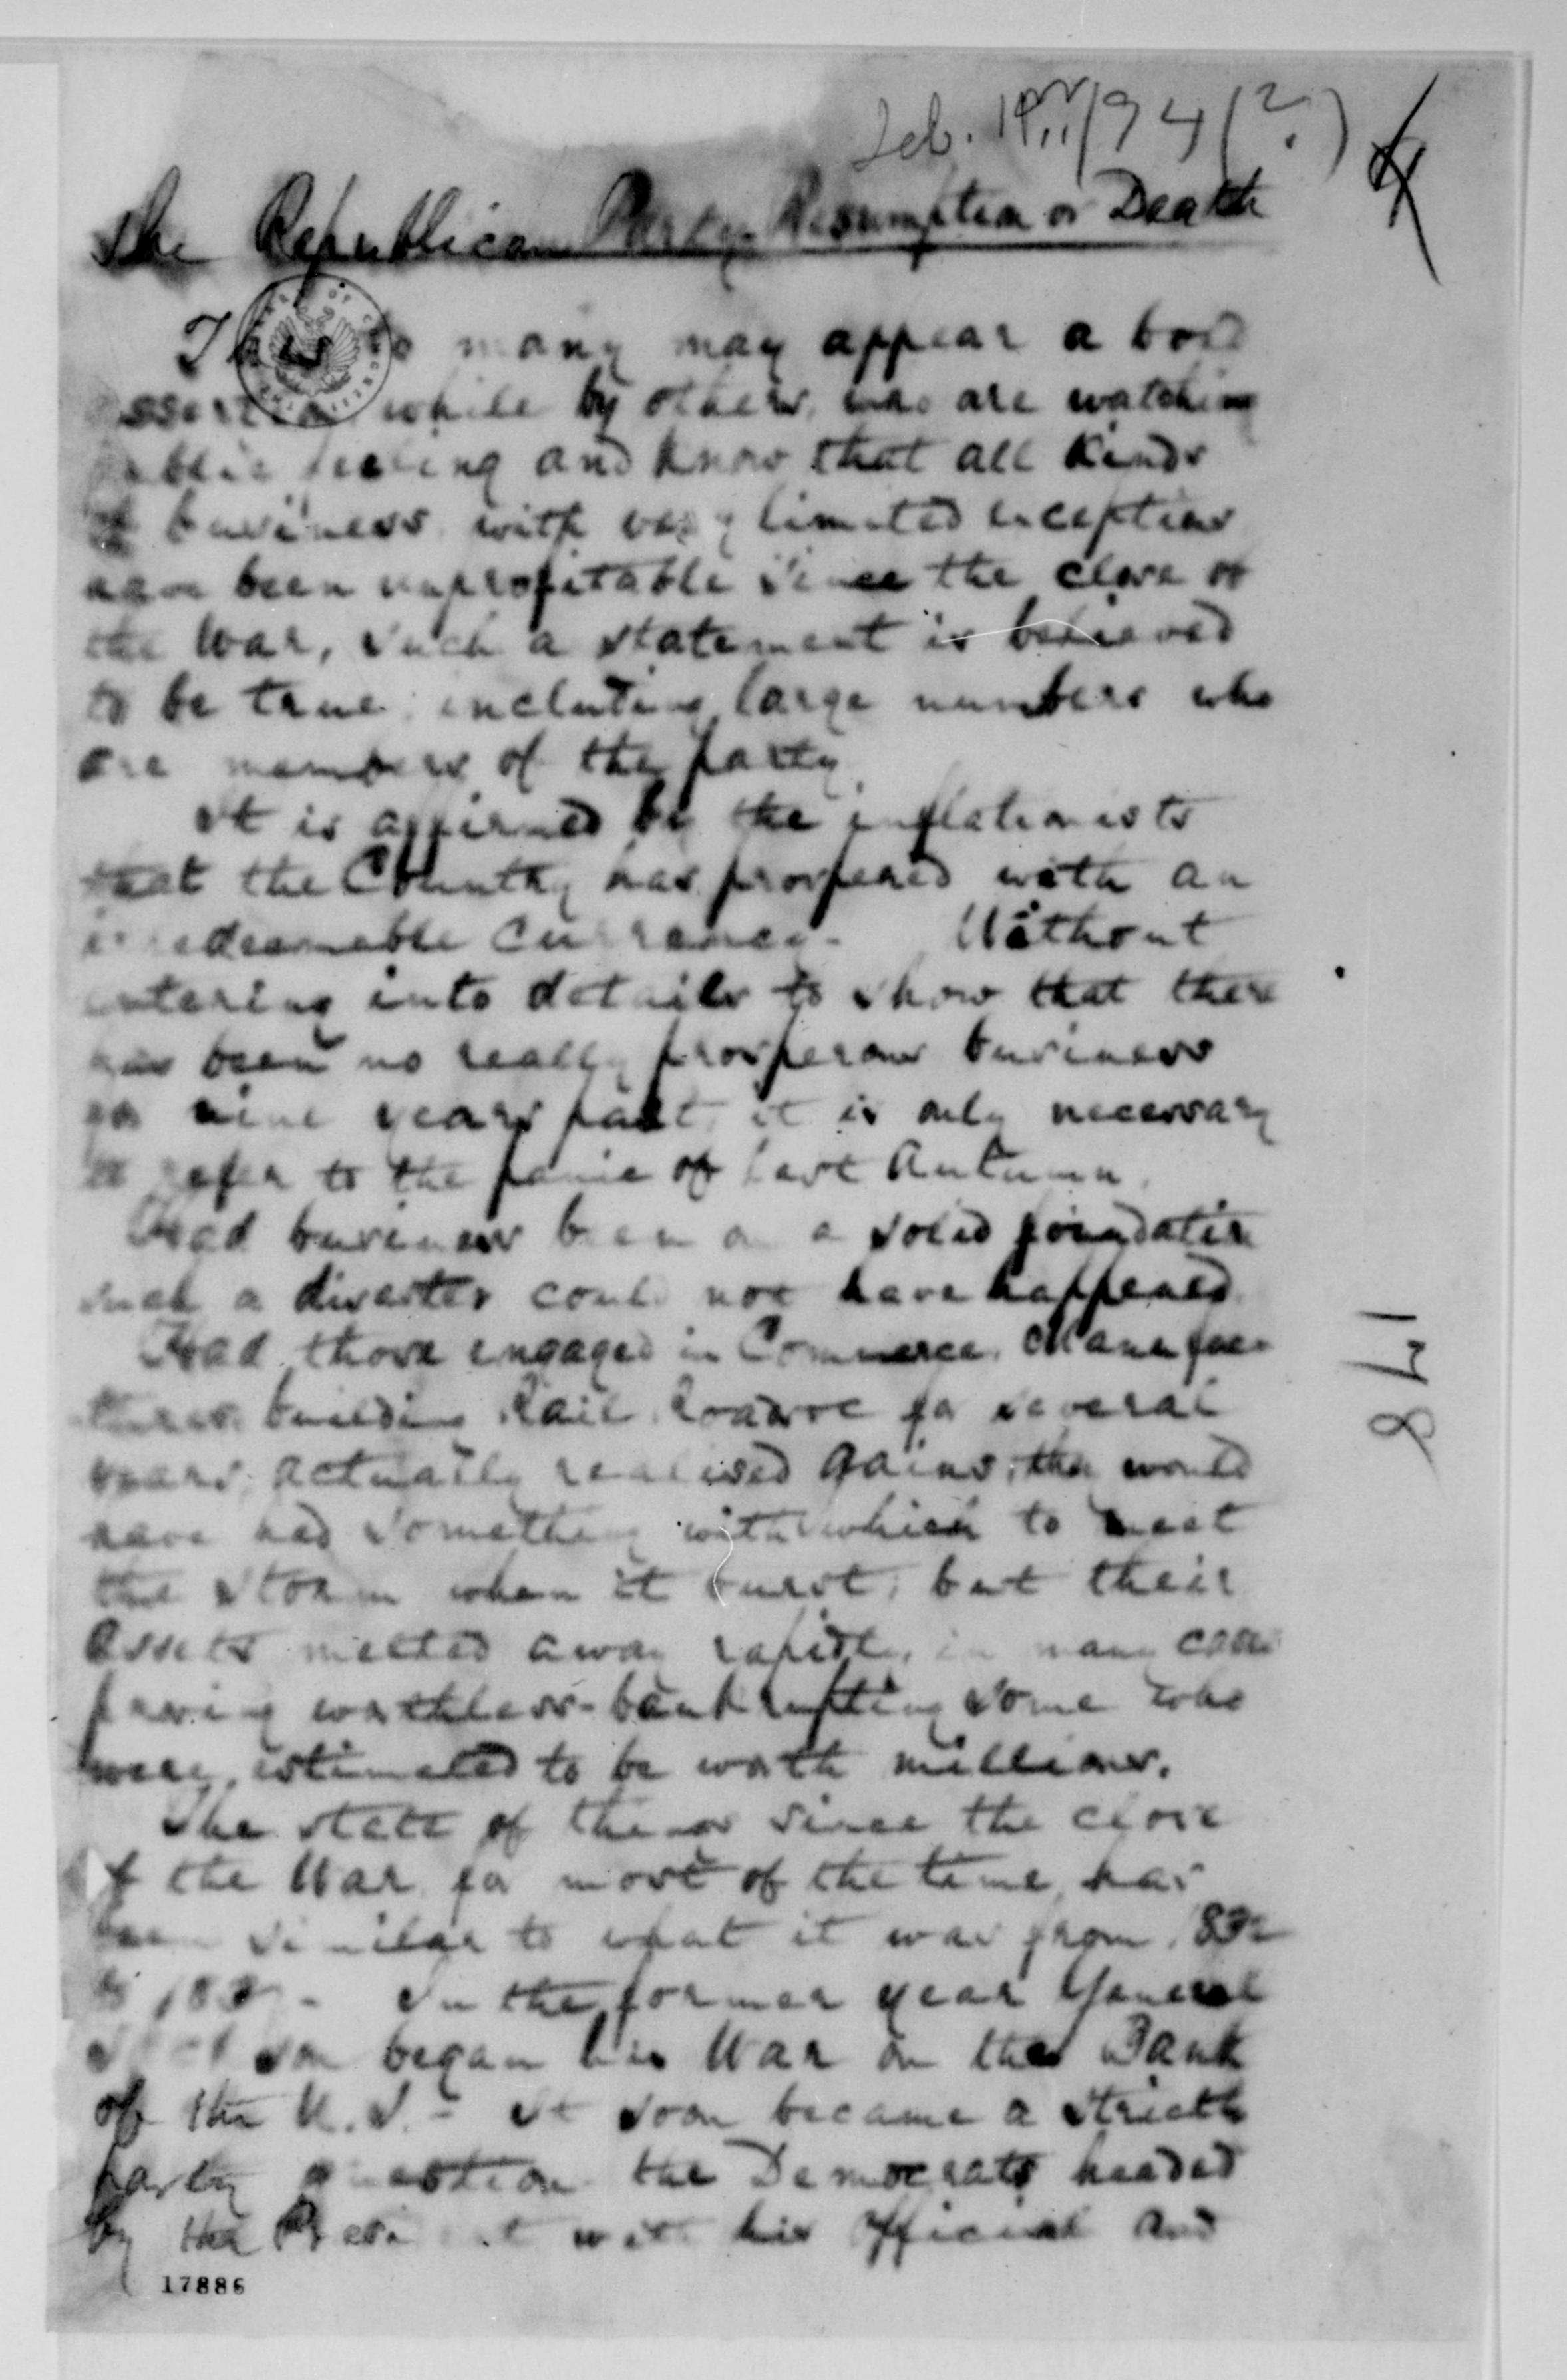 Feb. 194(?)
The Republican Party Resumption or Death
This to many may appear a bold
assertion while by others, who are watching
public feeling and know that all kinds
of business, with very limited exceptions
have been unprofitable since the close of
the War, such a statement is believed
to be true, including large numbers who
are members of the party
It is affirmed by the inflationists
that the Country has prospered with an
irredeemable currency - Without
entering into details to show that there
has been no really prosperous business
for nine years past, it is only necessary
to refer to the panic of last Autumn.
Had business been on a solid foundation
such a disaster could not have happened
Had those engaged in Commerce, Manufac-
tures, building Rail Roads for several
years, actually realised gains, they would
have had something with which to meet
the storm when it burst, but their
assets melted away rapidly, in many cases
proving worthless - bankrupting some who
were estimated to be worth millions.
The state of things since the close
of the War for most of the time, has
been similar to what it was from 1832
to 183 - In the former year General
Jackson began his War on the Bank
of the U.S. - It soon became a strictly
party question the Democrats headed
by the President with his official and
17886
178